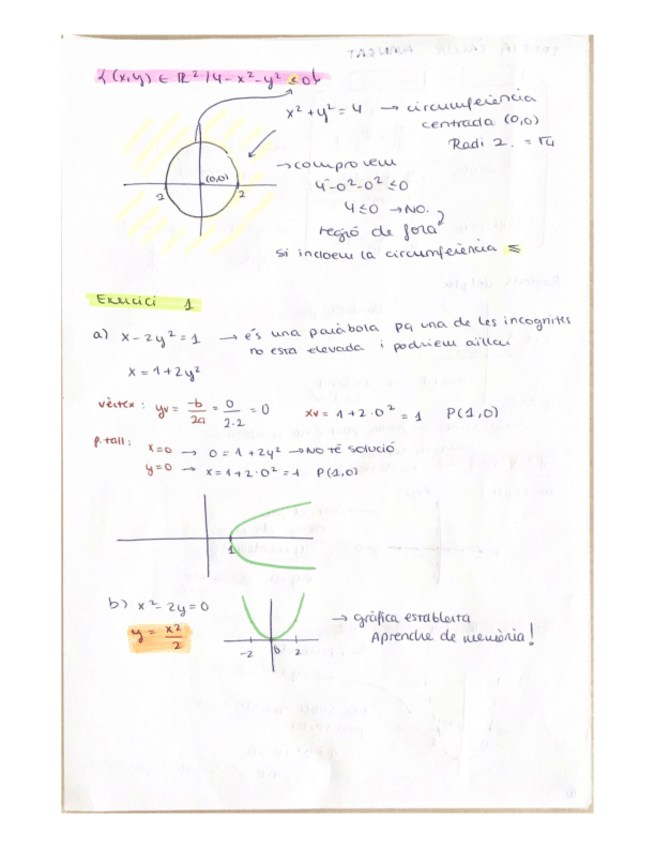 {(x,y) ∈ ℝ² / 4 - x² - y² ≤ 0}
x² + y² = 4 → circumferència
centrada (0,0)
Radi 2. = √4
→ comprovem
4 - 0² - 0² ≤ 0
4 ≤ 0 → NO.
regió de fora
si incloem la circumferència ≤
(0,0)
2 2
Exercici 1
a) x - 2y² = 1 → és una paràbola pq una de les incognites
no esta elevada i podriem aïllar
x = 1 + 2y²
vèrtex: yv = -b/2a = 0/2·2 = 0 xv = 1 + 2·0² = 1 P(1,0)
p. tall: x=0 → 0 = 1 + 2y² → NO TÉ SOLUCIÓ
y=0 → x = 1 + 2·0² = 1 P(1,0)
1
b) x² - 2y = 0
y = x²/2
→ gràfica establerta
Aprendre de memòria!
-2 0 2